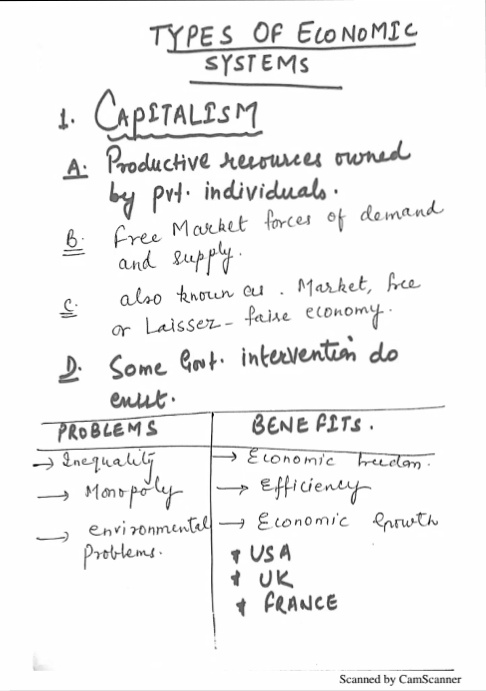 TYPES OF ECONOMIC
SYSTEMS
1. CAPITALISM
A. Productive resources owned
by pvt. individuals.
B. Free Market forces of demand
and supply.
C. also known as. Market, free
or Laissez-faise economy.
D. Some Govt. intervention do
exist.
PROBLEMS
→ Inequality
→ Monopoly
→ environmental
Problems.
BENEFITS.
→ Economic freedom.
→ Efficiency
→ Economic Growth
* USA
* UK
* FRANCE
Scanned by CamScanner